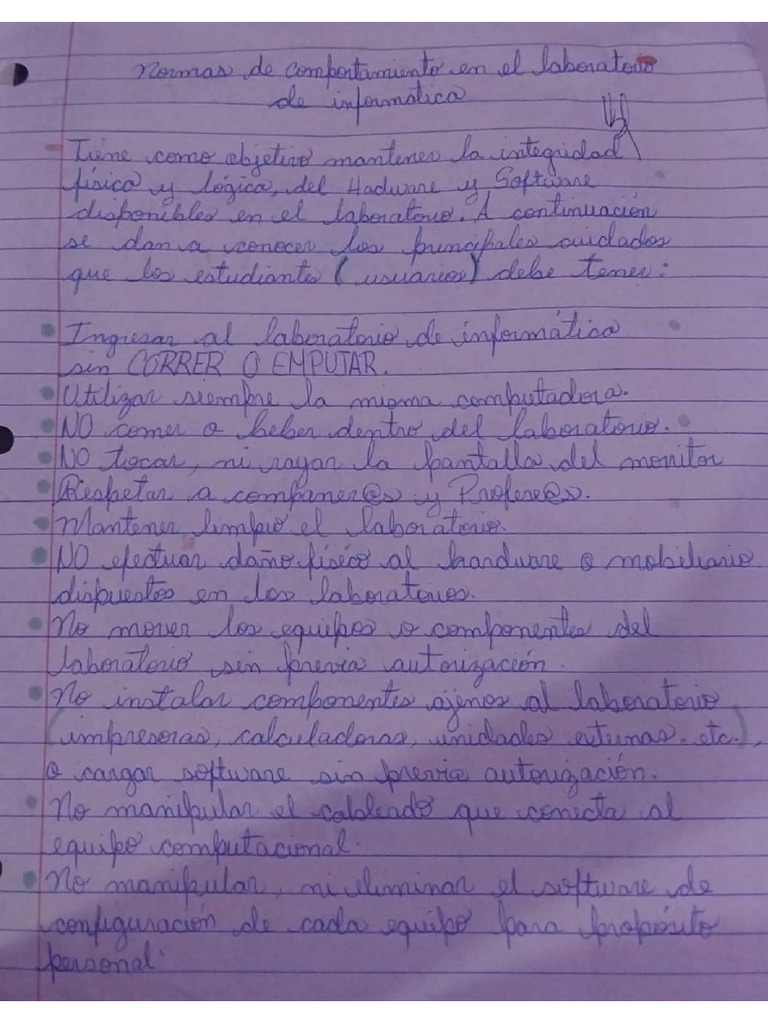 Normas de comportamiento en el laboratorio
de informática
Tiene como objetivo mantener la integridad
física y lógica, del Hadware y Software
disponibles en el laboratorio. A continuación
se dan a conocer los principales cuidados
que los estudiantes (usuarios) debe tener:
Ingresar al laboratorio de informática
sin CORRER O EMPUJAR.
Utilizar siempre la misma computadora.
NO comer o beber dentro del laboratorio.
NO tocar, ni rayar la pantalla del monitor
Respetar a compañer@s y Profesr@s.
Mantener limpio el laboratorio.
NO efectuar daño físico al handware o mobiliario
dispuestos en los laboratorios.
No mover los equipos o componentes del
laboratorio sin previa autorización.
No instalar componentes ajenos al laboratorio
(impresoras, calculadoras, unidades externas. etc.),
o cargar software sin previa autorización.
No manipular el cableado que conecta al
equipo computacional.
No manipular, ni eliminar el software de
configuración de cada equipo para propósito
personal.